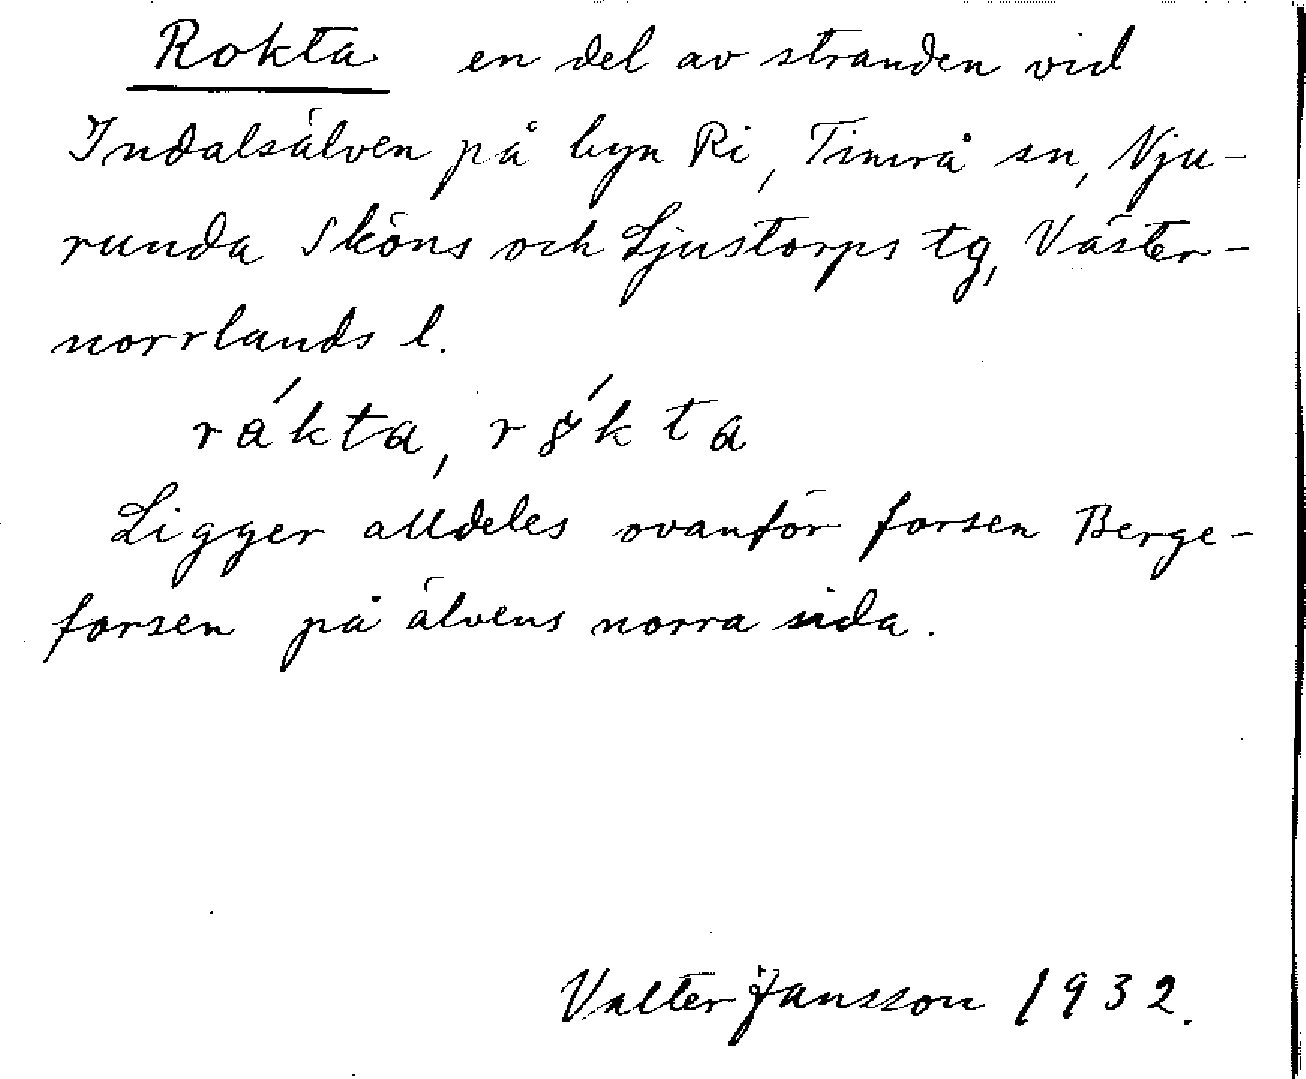 Rokta en del av stranden vid
Indalsälven på byn Ri, Timrå sn, Nju-
runda Sköns och Ljustorps tg, Väster-
norrlands l.
rákta, rókta
Ligger alldeles ovanför forsen Berge-
forsen på älvens norra sida.
Valter Jansson 1932.